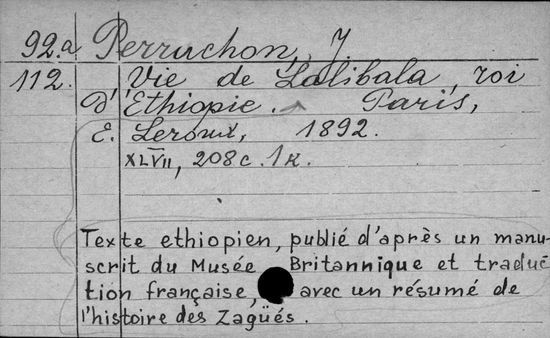 92.a Perruchon, J
112. Vie de Lalibala, roi
d'Ethiopie. Paris,
E. Leroux, 1892.
XLVII, 208c. 1к.
Texte ethiopien, publié d'après un manu-
scrit du Musée Britannique et traduc
tion française, avec un résumé de
l'histoire des Zagüés.